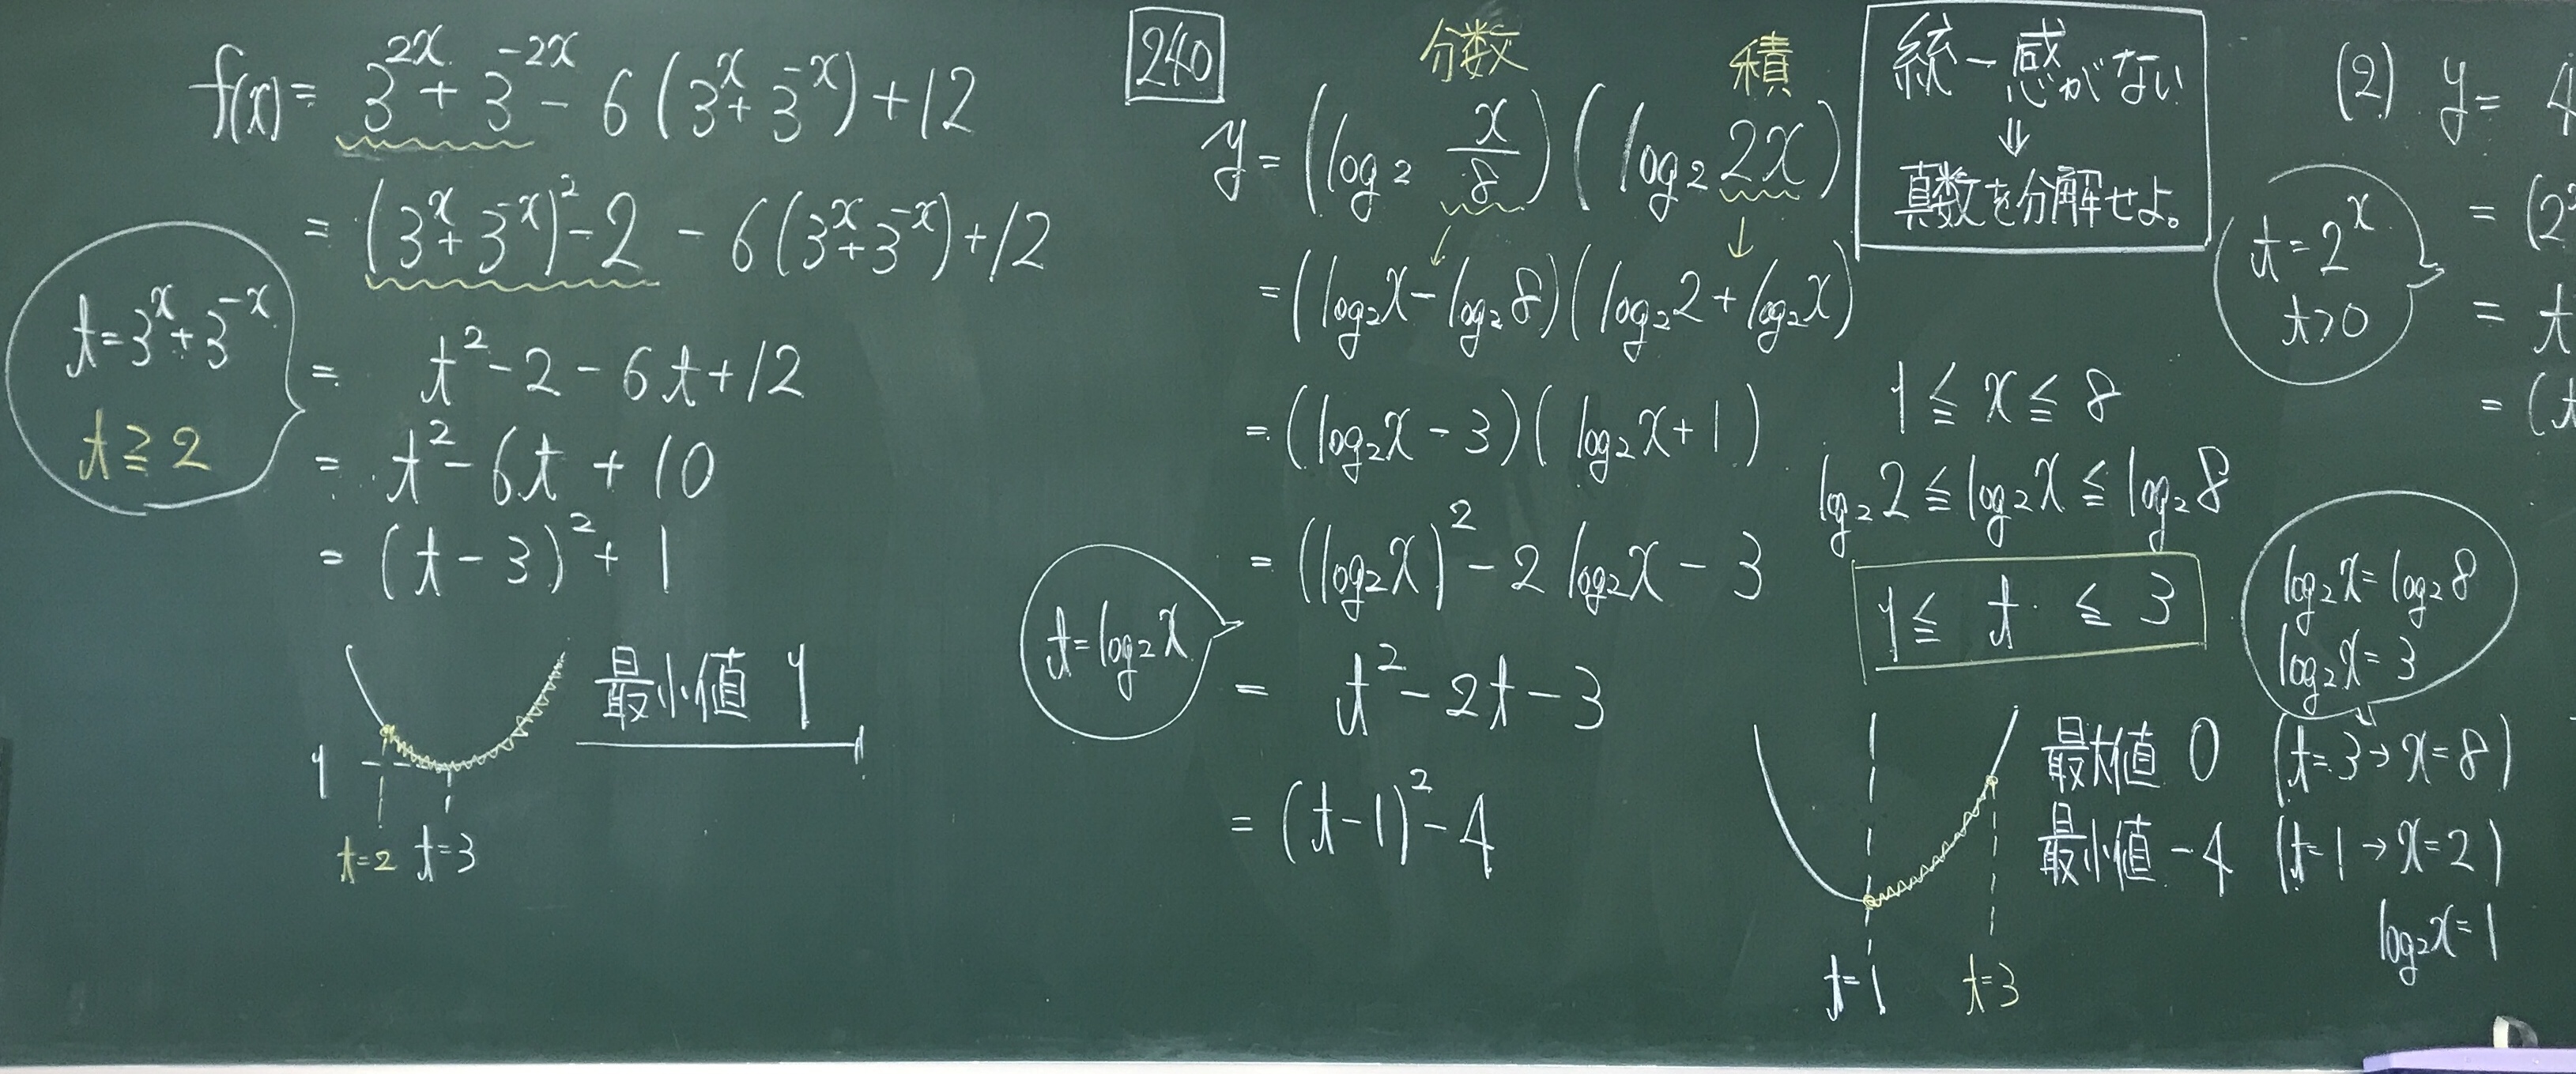 f(x) = 3^{2x} + 3^{-2x} - 6(3^x + 3^{-x}) + 12
= (3^x + 3^{-x})^2 - 2 - 6(3^x + 3^{-x}) + 12
t = 3^x + 3^{-x}
t ≧ 2
= t^2 - 2 - 6t + 12
= t^2 - 6t + 10
= (t - 3)^2 + 1
最小値 1
1
t=2 t=3
240
分数 積
y = (log_2 x/8)(log_2 2x)
= (log_2 x - log_2 8)(log_2 2 + log_2 x)
= (log_2 x - 3)(log_2 x + 1)
= (log_2 x)^2 - 2 log_2 x - 3
t = log_2 x
= t^2 - 2t - 3
= (t-1)^2 - 4
統一感がない
⇓
真数を分解せよ。
1 ≦ x ≦ 8
log_2 2 ≦ log_2 x ≦ log_2 8
1 ≦ t ≦ 3
log_2 x = log_2 8
log_2 x = 3
最大値 0 (t=3→x=8)
最小値 -4 (t=1→x=2)
log_2 x = 1
t=1 t=3
(2) y = 4
= (2
t = 2^x
t > 0
= t
= (t